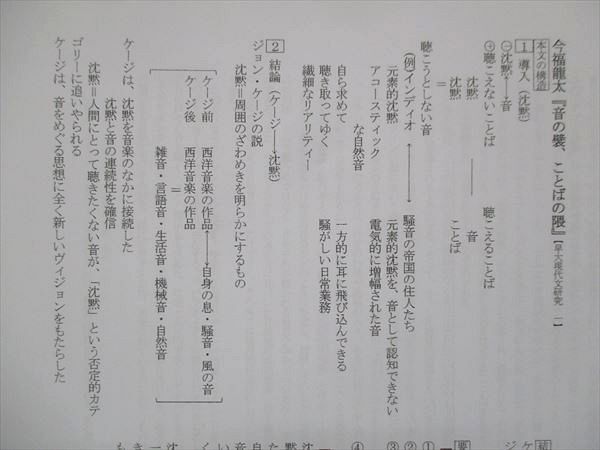 今福龍太『音の襞、ことばの隈』【早大現代文研究 一】
本文の構造
1 導入（沈黙）
㊀沈黙⟷音
㊉聴こえないことば　聴こえることば
沈黙 ――― 音
沈黙　ことば
＝
聴こうとしない音
（例）インディオ ⟷ 騒音の帝国の住人たち
元素的沈黙　元素的沈黙を、音として認知できない
アコースティックな自然音　電気的に増幅された音
自ら求めて聴き取ってゆく　一方的に耳に飛び込んできる
繊細なリアリティー　騒がしい日常業務
2 結論（ケージ⟶沈黙）
ジョン・ケージの説
沈黙＝周囲のざわめきを明らかにするもの
ケージ前　西洋音楽の作品⟷自身の息・騒音・風の音
ケージ後　西洋音楽の作品
＝
雑音・言語音・生活音・機械音・自然音
ケージは、沈黙を音楽のなかに接続した
沈黙と音の連続性を確信
沈黙＝人間にとって聴きたくない音が、「沈黙」という否定的カテ
ゴリーに追いやられる
ケージは、音をめぐる思想に全く新しいヴィジョンをもたらした
要
①
②
③
④